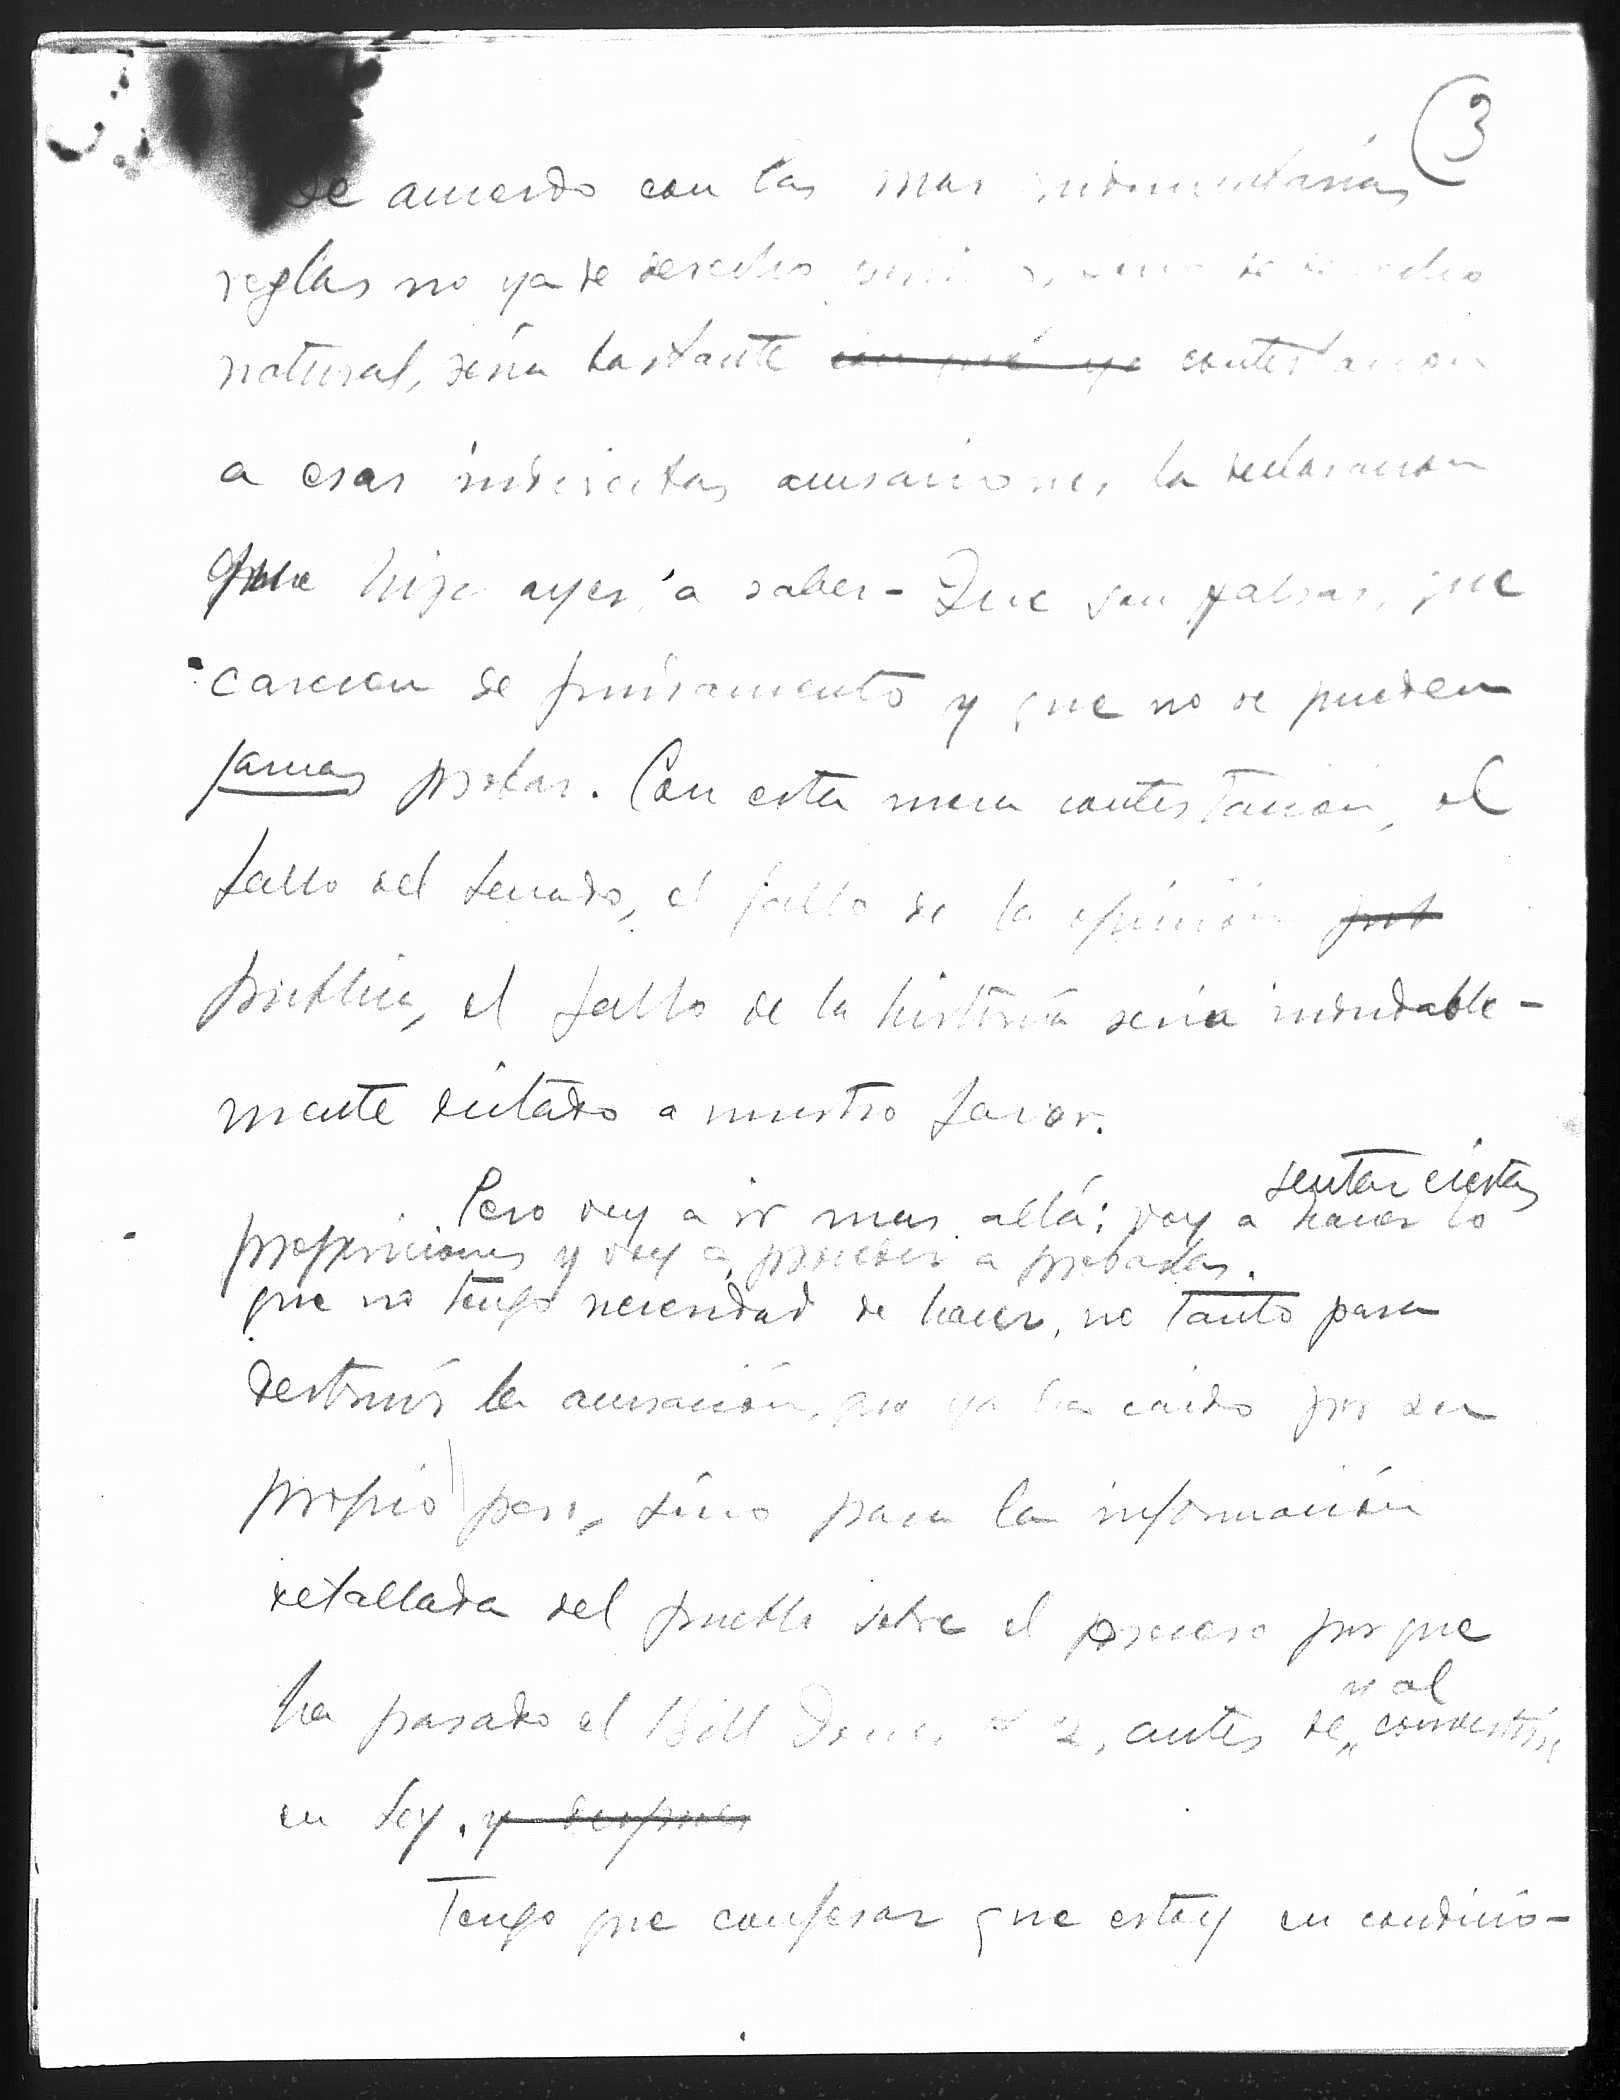 3
De acuerdo con las mas rudimentarias
reglas no ya de derecho sino de derecho
natural, sería bastante con que yo contestación
a esas indirectas acusaciones, la declaración
que hize ayer, a saber - Que son falsas, que
carecen de fundamento y que no se pueden
jamas probar. Con esta mera contestación, el
fallo del Senado, el fallo de la opinión pub
publica, el fallo de la historia seria indudable-
mente dictado a nuestro favor.
sentar ciertas
Pero voy a ir mas allá; voy a hacer lo
proposiciones y voy a proceder a probarlas.
que no tengo necesidad de hacer, no tanto para
destruir la acusación, que ya ha caido por su
propio peso, sino para la información
detallada del pueblo sobre el proceso porque
ha pasado el Bill Dones 2, antes de convertirse
en Ley. y despues
Tengo que confesar que estoy en condicio-